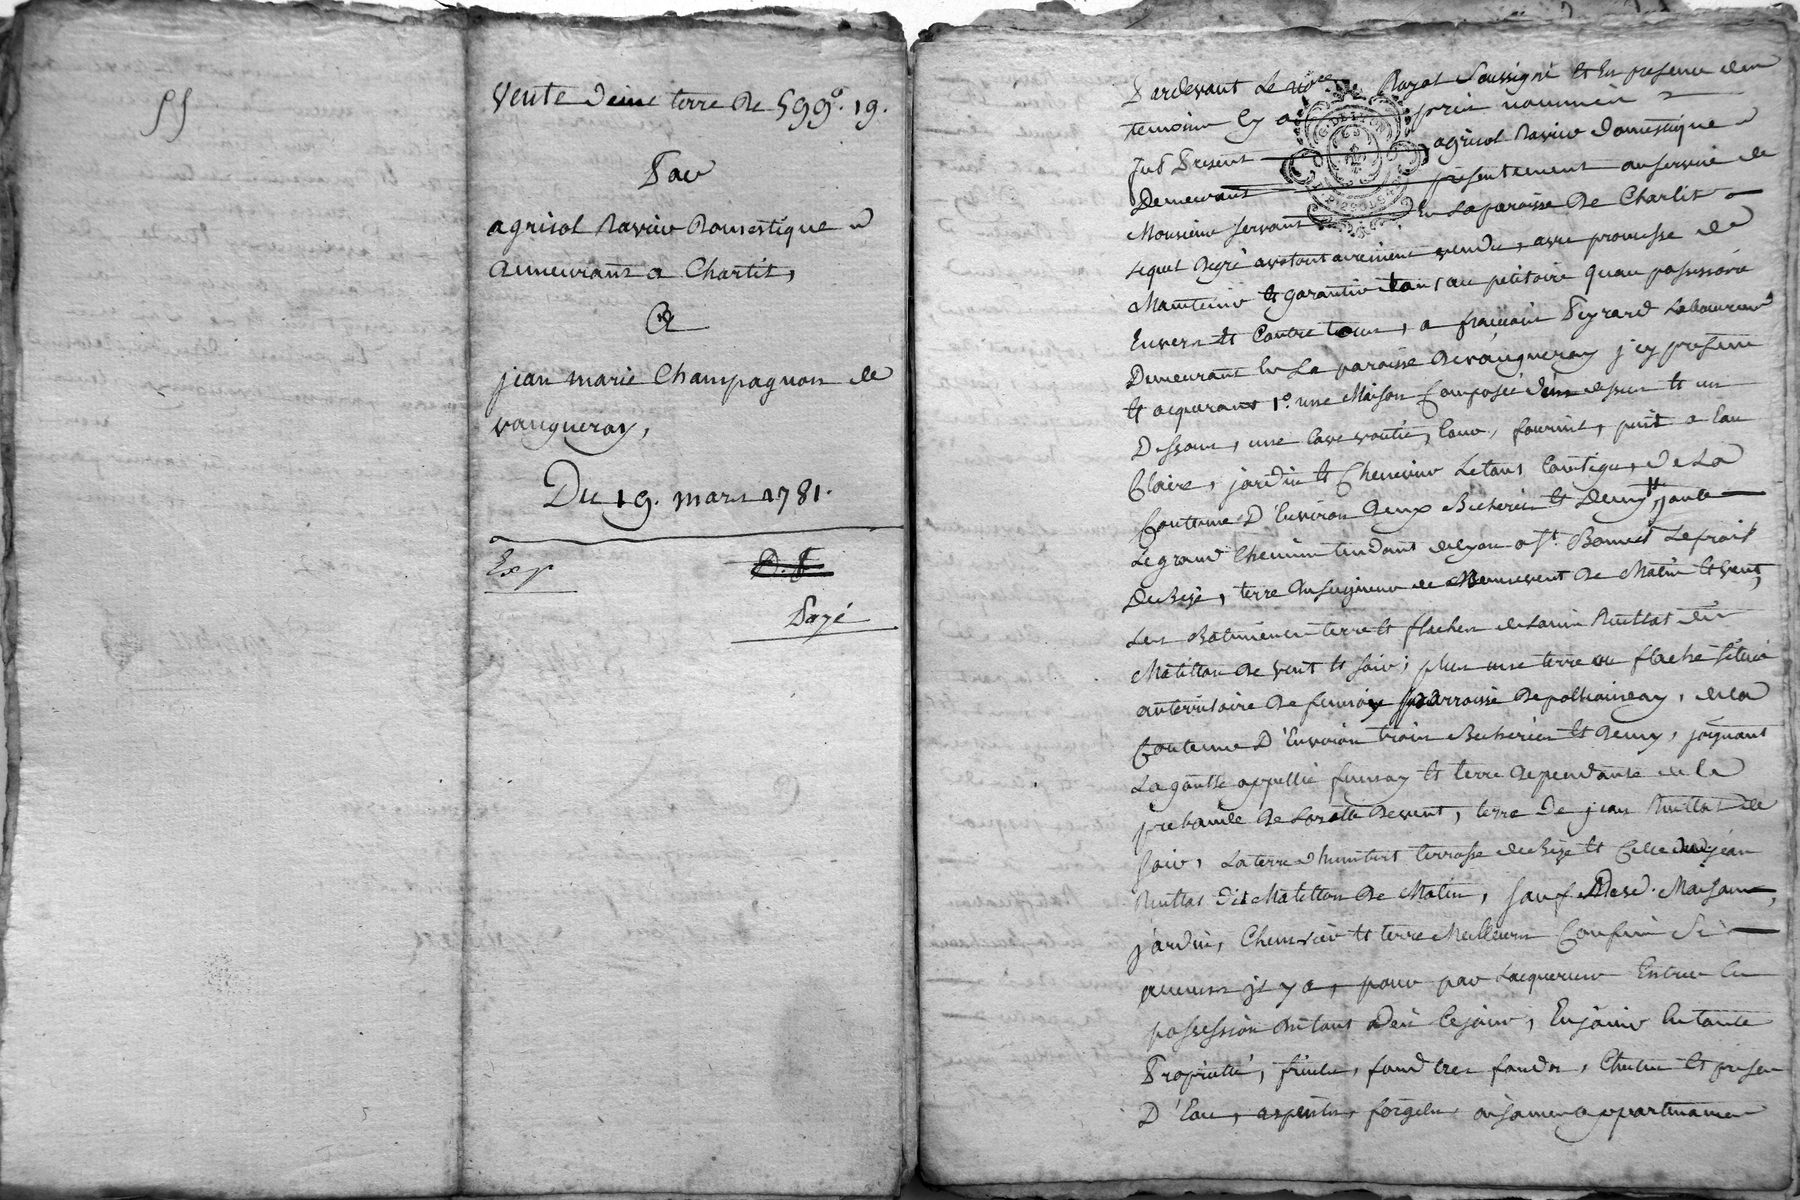 Vente d'eine terre de 599°. 19.
Par
agricol Ravier Domestique
demeurant a Charlit,
A
jean marie Champagnon de
vaugneray,
Du 19. mars 1781.
Exp
D. F.
Payé
Pardevant Le no.re Royal Soussigné et En presence des
temoins Cy apres nommés
fut Present agricol Ravier domestique
Demeurant presentement au service de
Monsieur Servant En La paroisse De Charlit
Lequel De gré a volontairement vendu, avec promesse de
Maintenir et garantir tant au petitoire quau possessoire
Envers et Contre tous, a francois Peyrard Laboureur
Demeurant En La paroisse De vaugneray j cy present
et acquerant 1°. une Maison Composée d'un dessus et un
Dessous, une Cave voutée, Cour, fournil, puit a Eau
Claire, jardin et Chenevier Le tout Contigu, de La
Contenue D'Environ deux Bicherées et demy, joute
Le grand Chemin tendant de lyon a St. Bonnet Le froid
De bize, terre du seigneur de de Matin et vent,
Les Batiments terre et flachere de
De vent et soir; plus une terre ou flache située
au territoire De parroisse De pollionnay, de la
Contenue D'Environ trois Bicherées et Demy, joignant
La goutte appellée et terre dependante de la
prebande De De vent, terre de jean de
soir, La terre d'humbert terrasse de bize et Celle dud jean
dit De Matin, sauf Desd. Maison,
jardin, Chenevier et terre Meilleurs Confins Si
aucuns jl y a, pour par Lacquereur Entrer En
possession du tout dès Ce jour, En jouir En toute
Proprieté, fruits, fond tres fonds, Chutes et prises
D'Eau, aisances appartenances